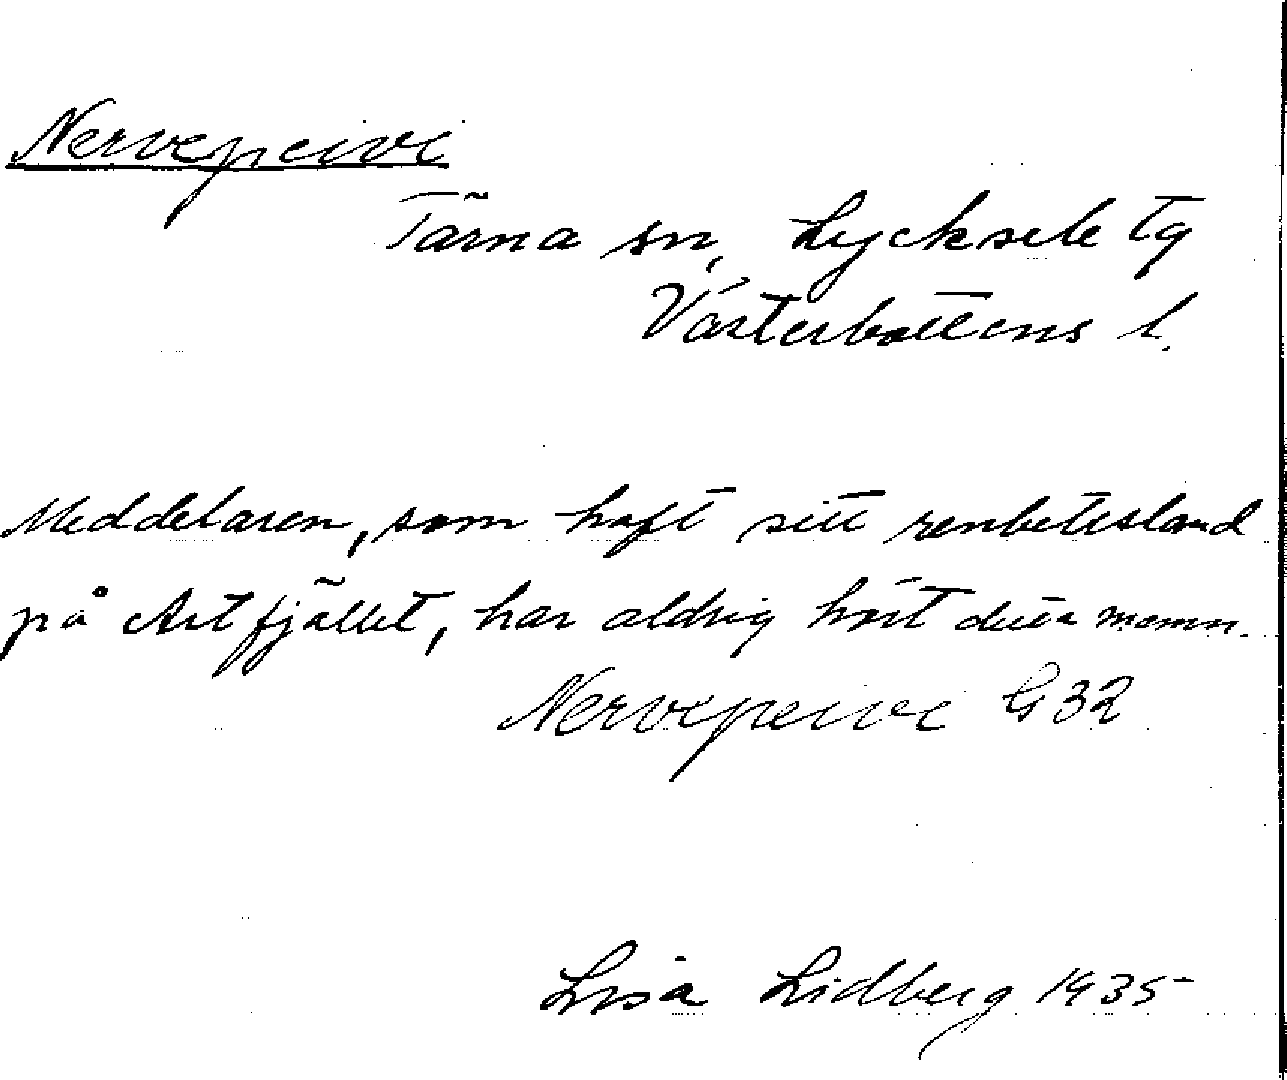 Nervepeive
Tärna sn, Lycksele tg
Västerbottens l.
Meddelaren, som haft sitt renbetesland
på Artfjället, har aldrig hört detta namn.
Nervepeive G 32
Lisa Lidberg 1935